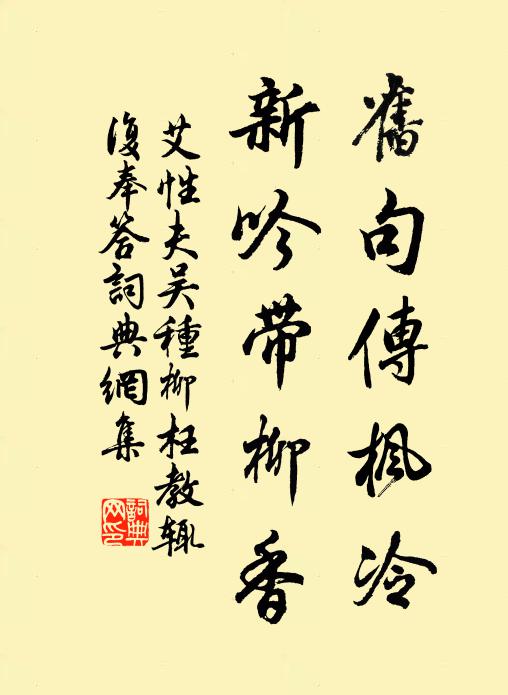 舊句傳楓冷
新吟帶柳香
艾性夫吴種柳枉教辄
復奉答詞典網集
詞典
网印